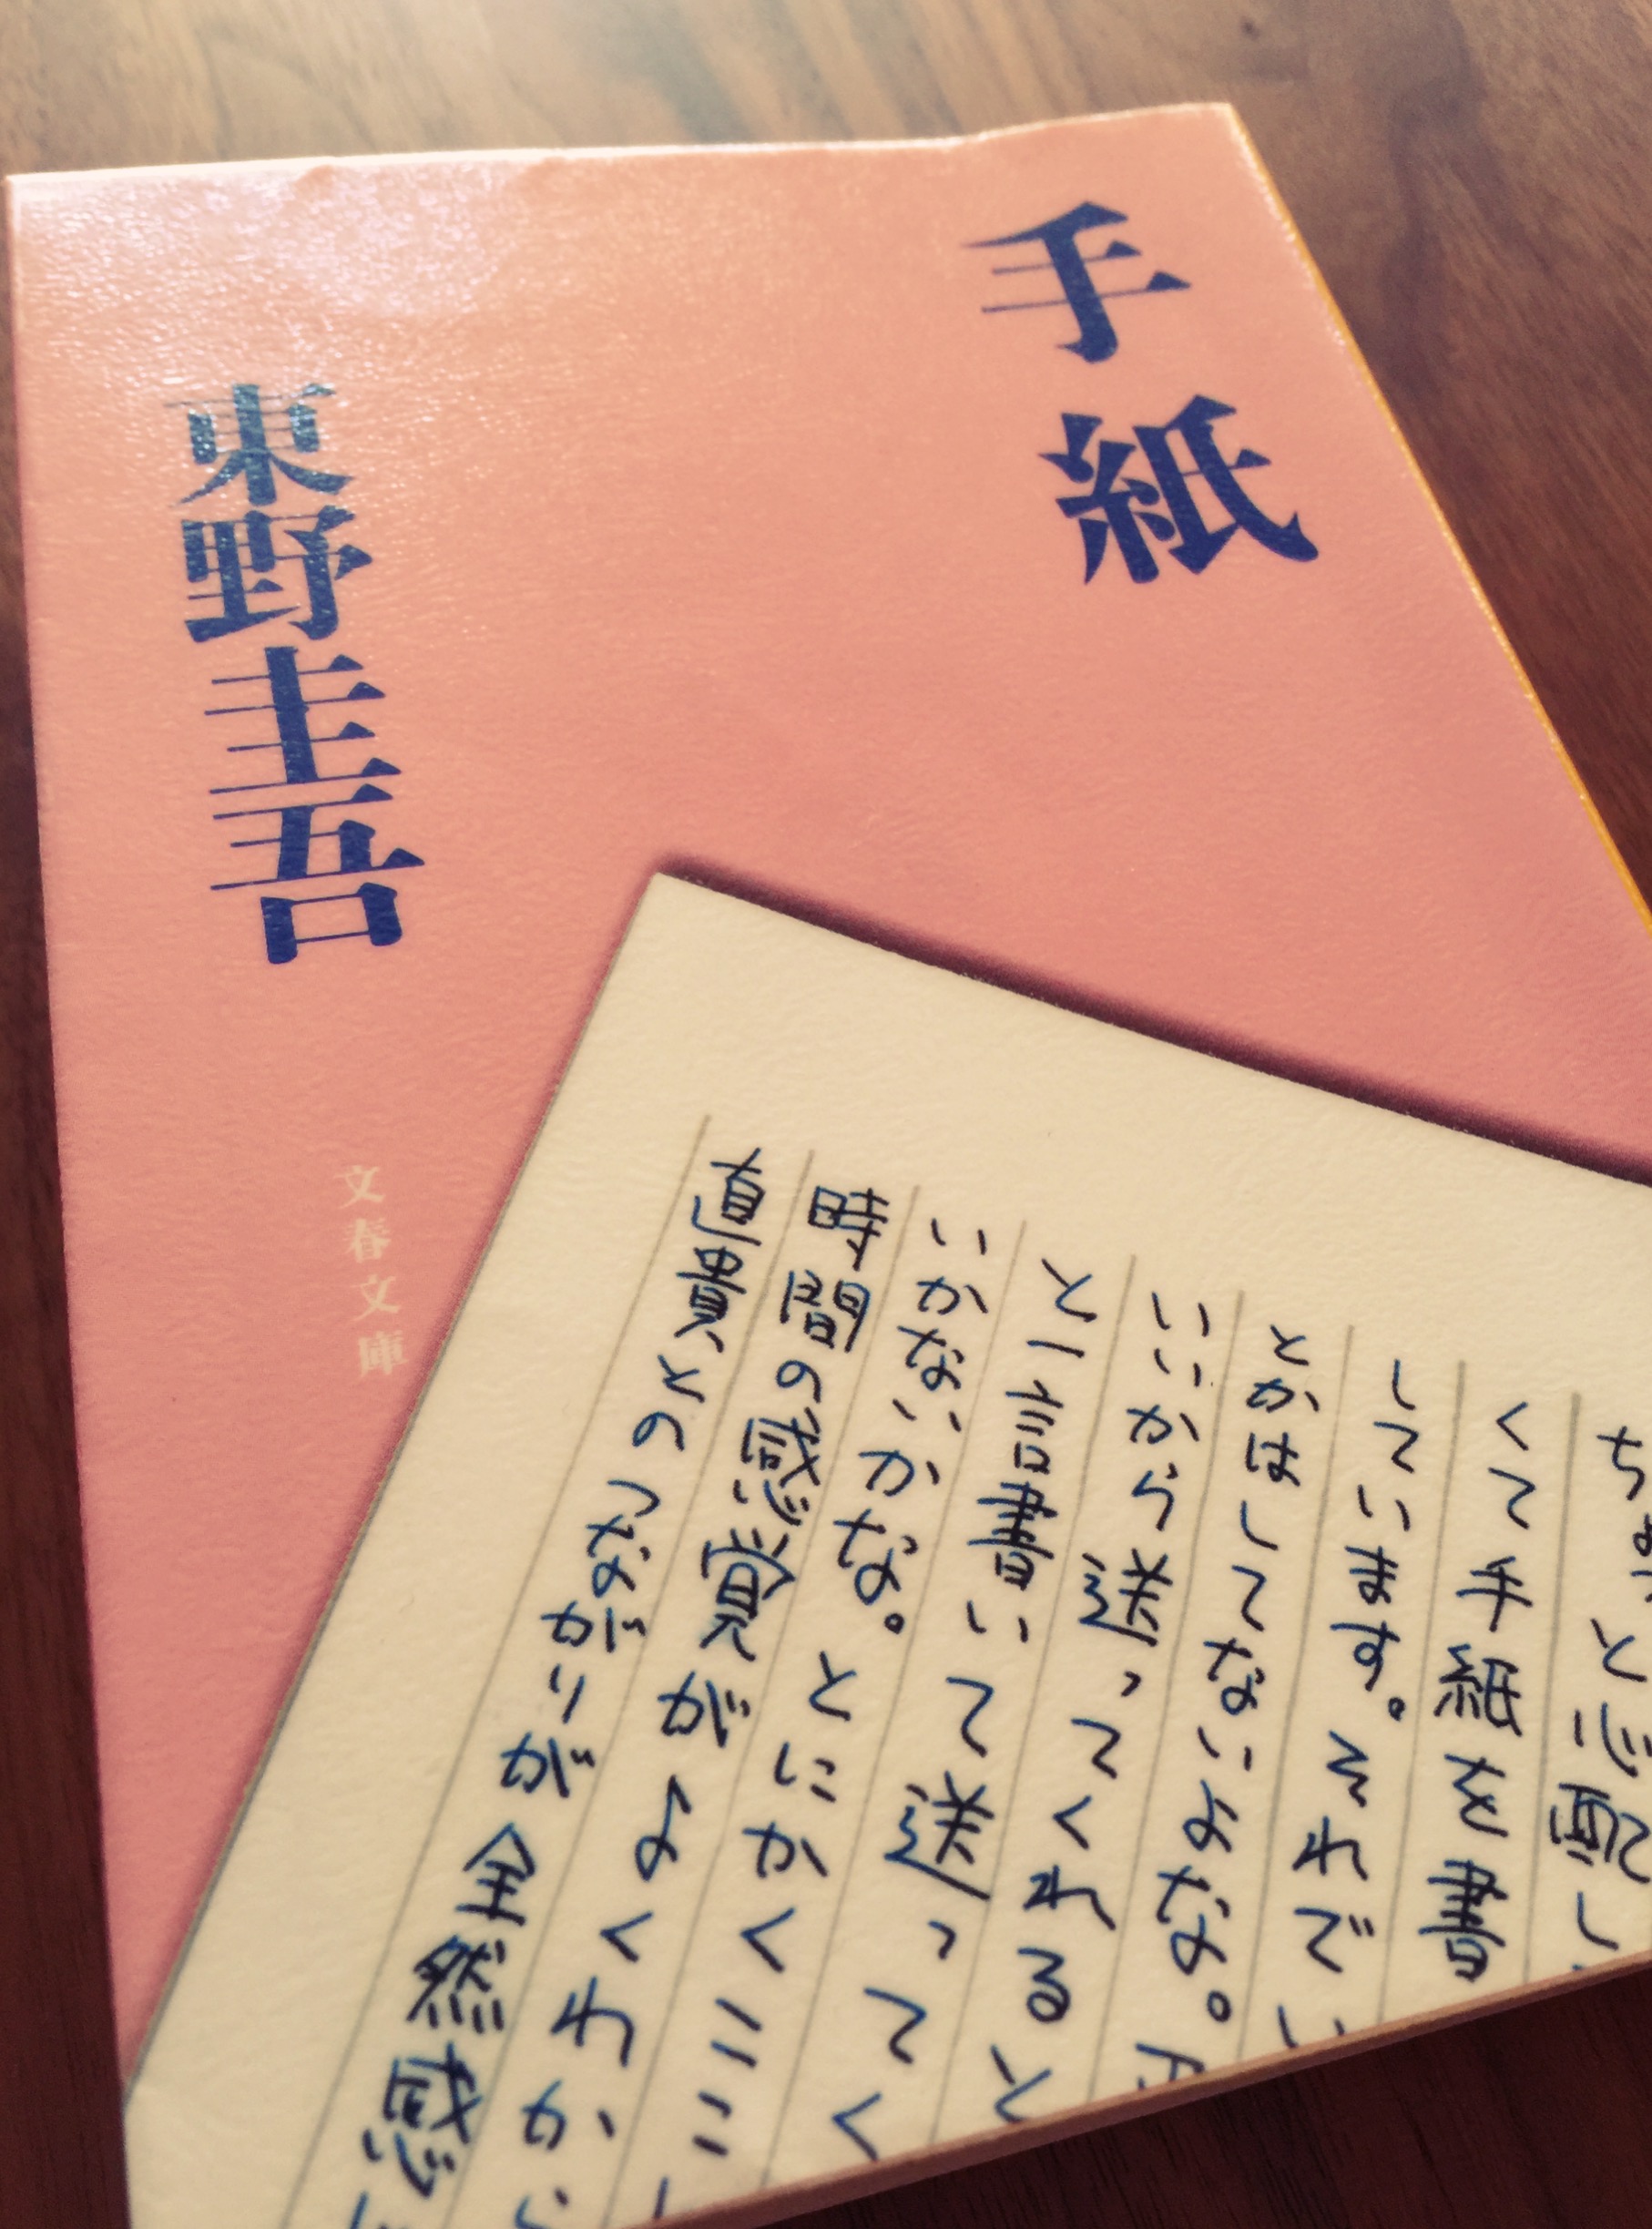 手紙
東野圭吾
文春文庫
と心配し
くて手紙を書
しています。それでい
とかはしてないよな。
いいから送ってくれると
と一言書いて送ってく
いかないかな。とにかくここ
時間の感覚がよくわから
直貴とのつながりが全然感じ